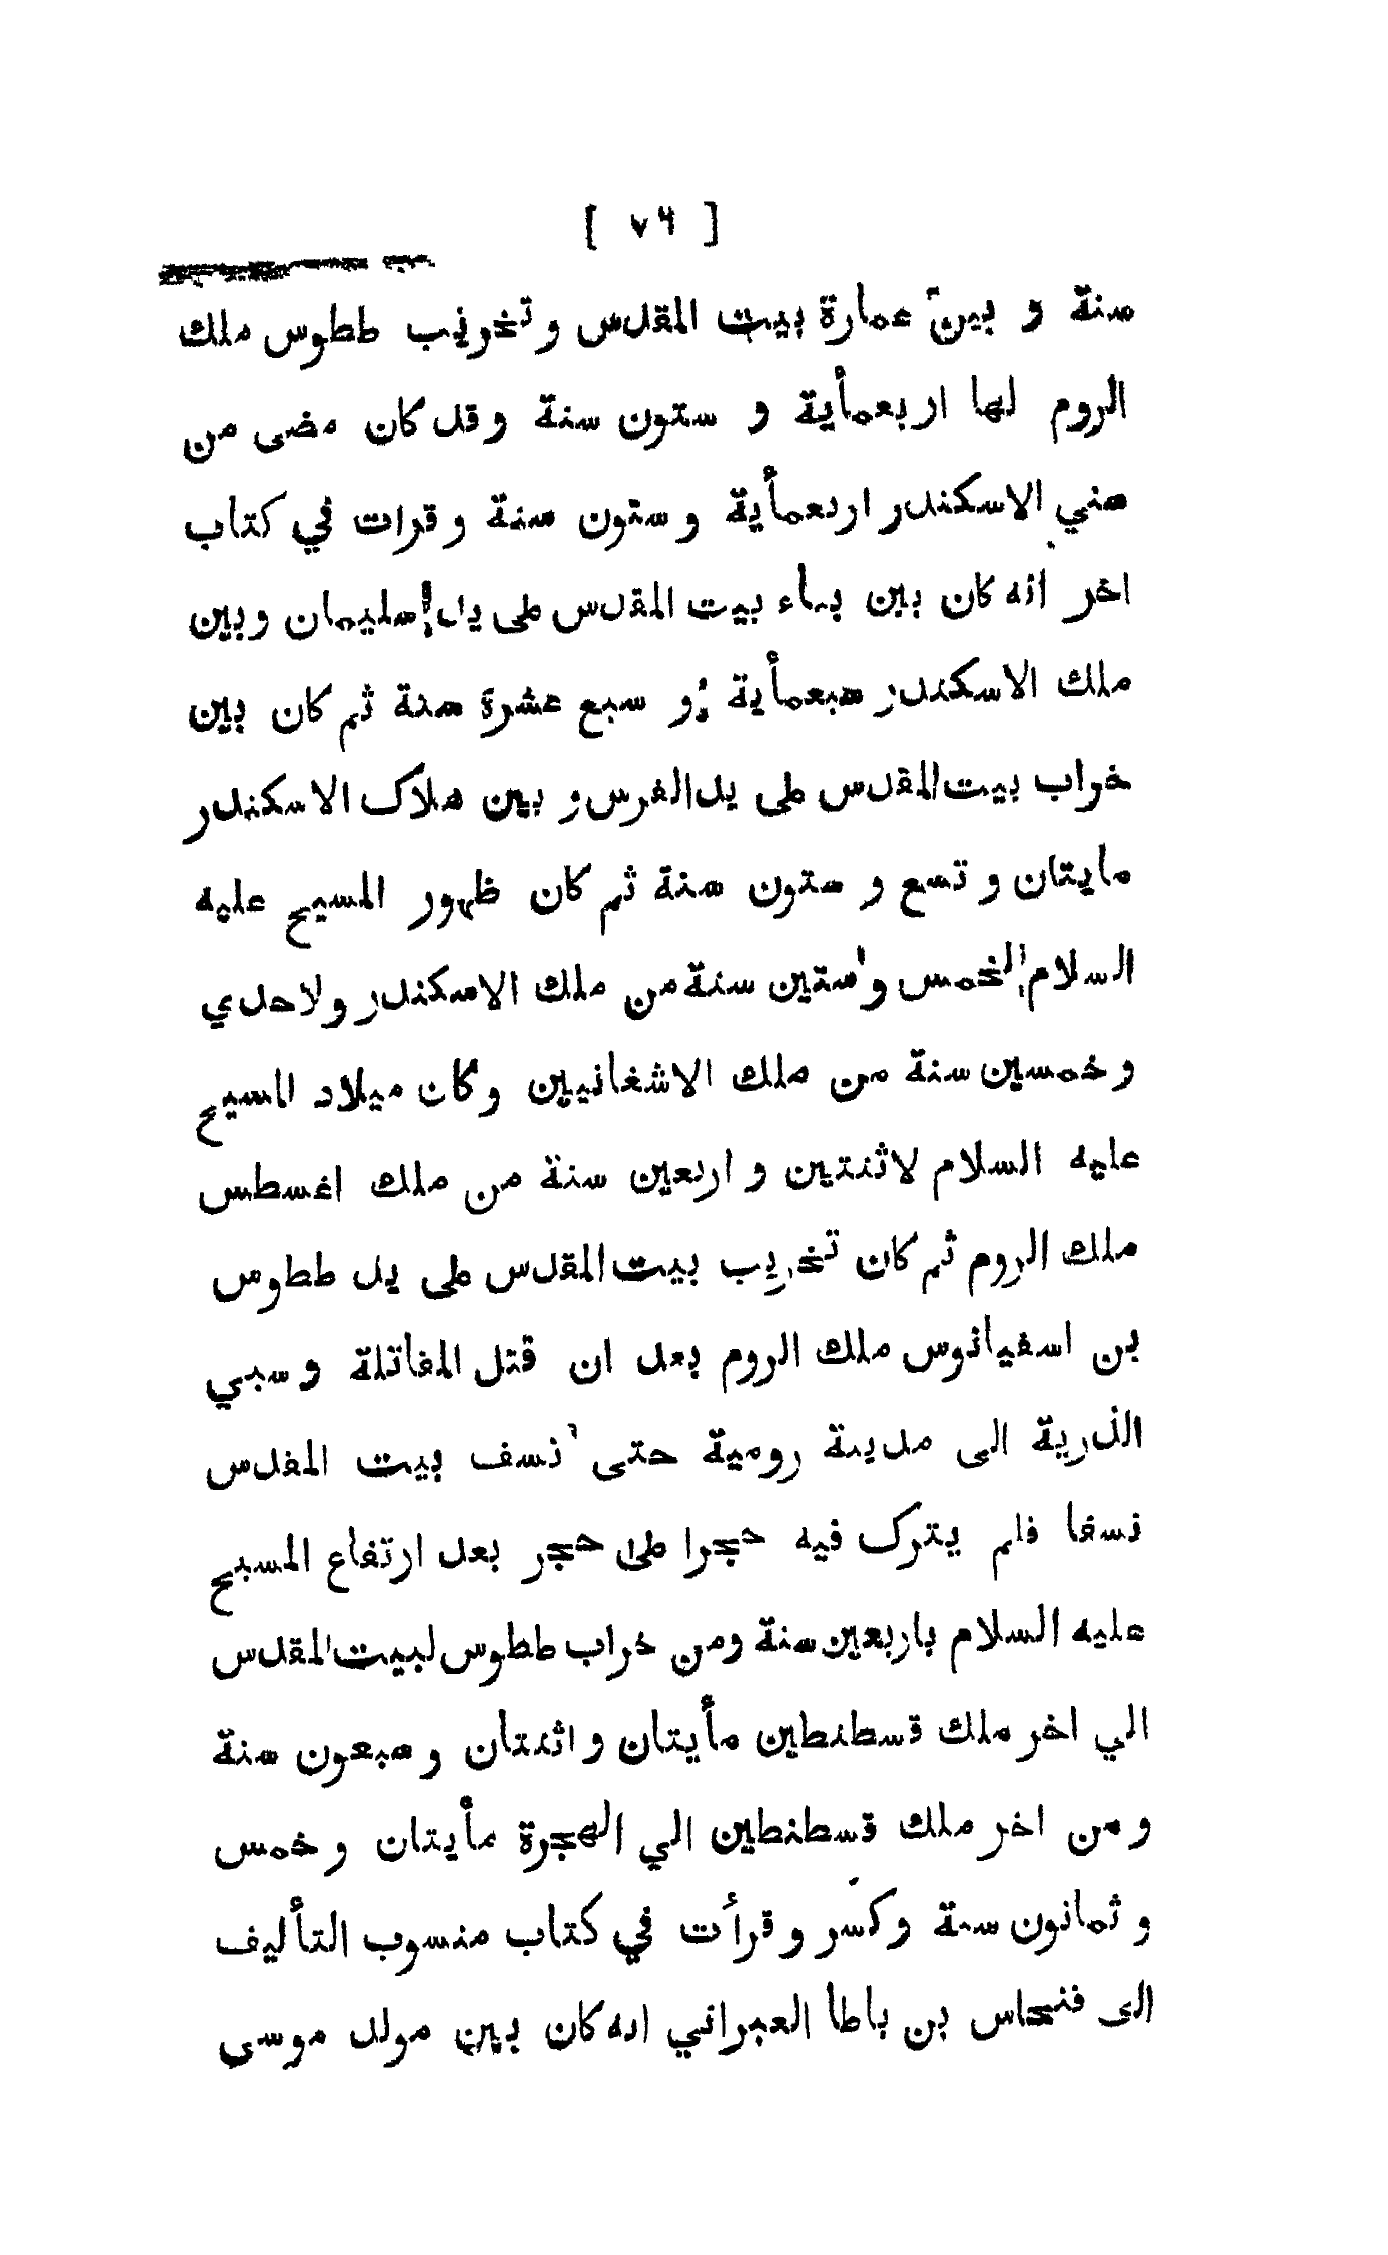 [ ٧٦ ]
سنة و بين عمارة بيت المقدس و تخريب ططوس ملك
الروم لها اربعمأية و ستون سنة و قد كان مضى من
سني الاسكندر اربعمأية و ستون سنة و قرات في كتاب
اخر انه كان بين بناء بيت المقدس على يد سليمان و بين
ملك الاسكندر سبعمأية و سبع عشرة سنة ثم كان بين
خراب بيت المقدس على يد الفرس و بين هلاك الاسكندر
مايتان و تسع و ستون سنة ثم كان ظهور المسيح عليه
السلام لخمس و ستين سنة من ملك الاسكندر ولاحدي
و خمسين سنة من ملك الاشغانيين و كان ميلاد المسيح
عليه السلام لاثنتين و اربعين سنة من ملك اغسطس
ملك الروم ثم كان تخريب بيت المقدس على يد ططوس
بن اسفيانوس ملك الروم بعد ان قتل المقاتلة و سبي
الذرية الى مدينة رومية حتى نسف بيت المقدس
نسفا فلم يترك فيه حجرا على حجر بعد ارتفاع المسيح
عليه السلام باربعين سنة ومن خراب ططوس لبيت المقدس
الي اخر ملك قسطنطين مأيتان و اثنتان و سبعون سنة
و من اخر ملك قسطنطين الي الهجرة مأيتان و خمس
و ثمانون سنة وكسر و قرأت في كتاب منسوب التأليف
الى فنحاس بن باطا العبراني انه كان بين مولد موسى